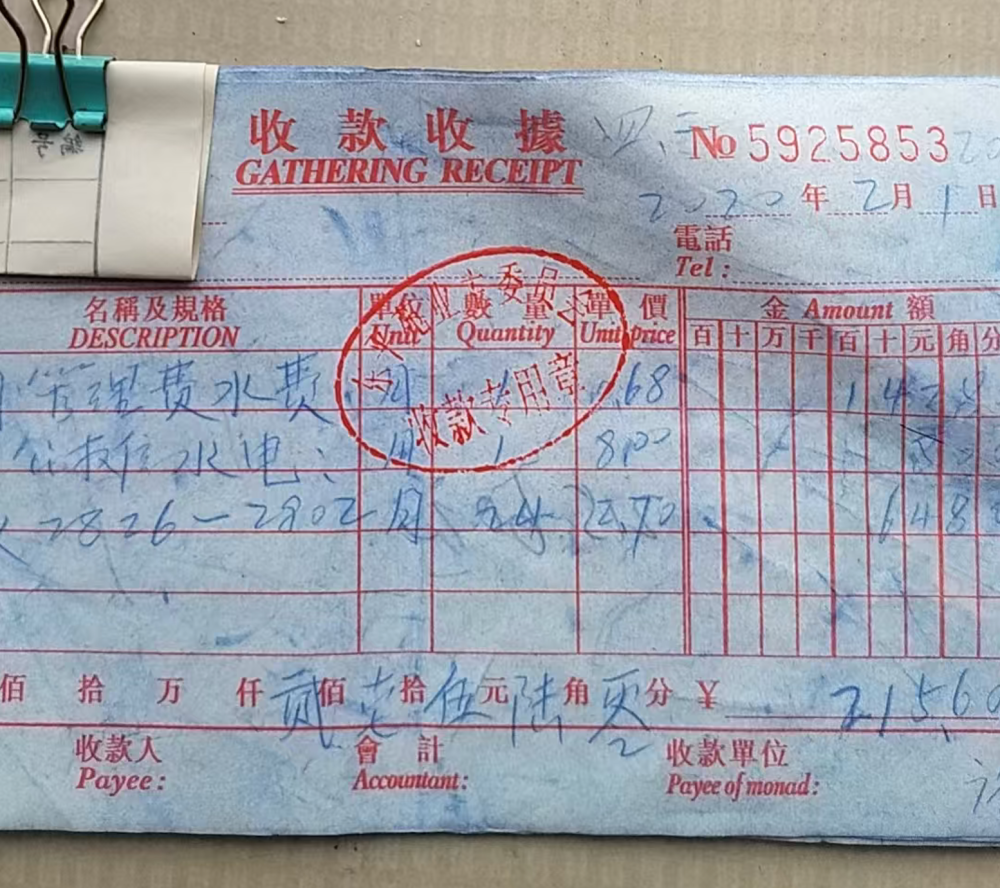 收款收據 № 5925853
GATHERING RECEIPT
2020年2月1日
電話
Tel:
名稱及規格 單位 數量 單價 金 Amount 額
DESCRIPTION Unit Quantity Unit price 百十万千百十元角分
管理费水费 .68 1 4
水电 1 8.00
2826-2902 月 24 2.70 6 4 8
收款专用章
佰 拾 万 仟 贰佰 壹拾 伍元 陆角 零分 ¥ 215.60
收款人 會計 收款單位
Payee: Accountant: Payee of monad: